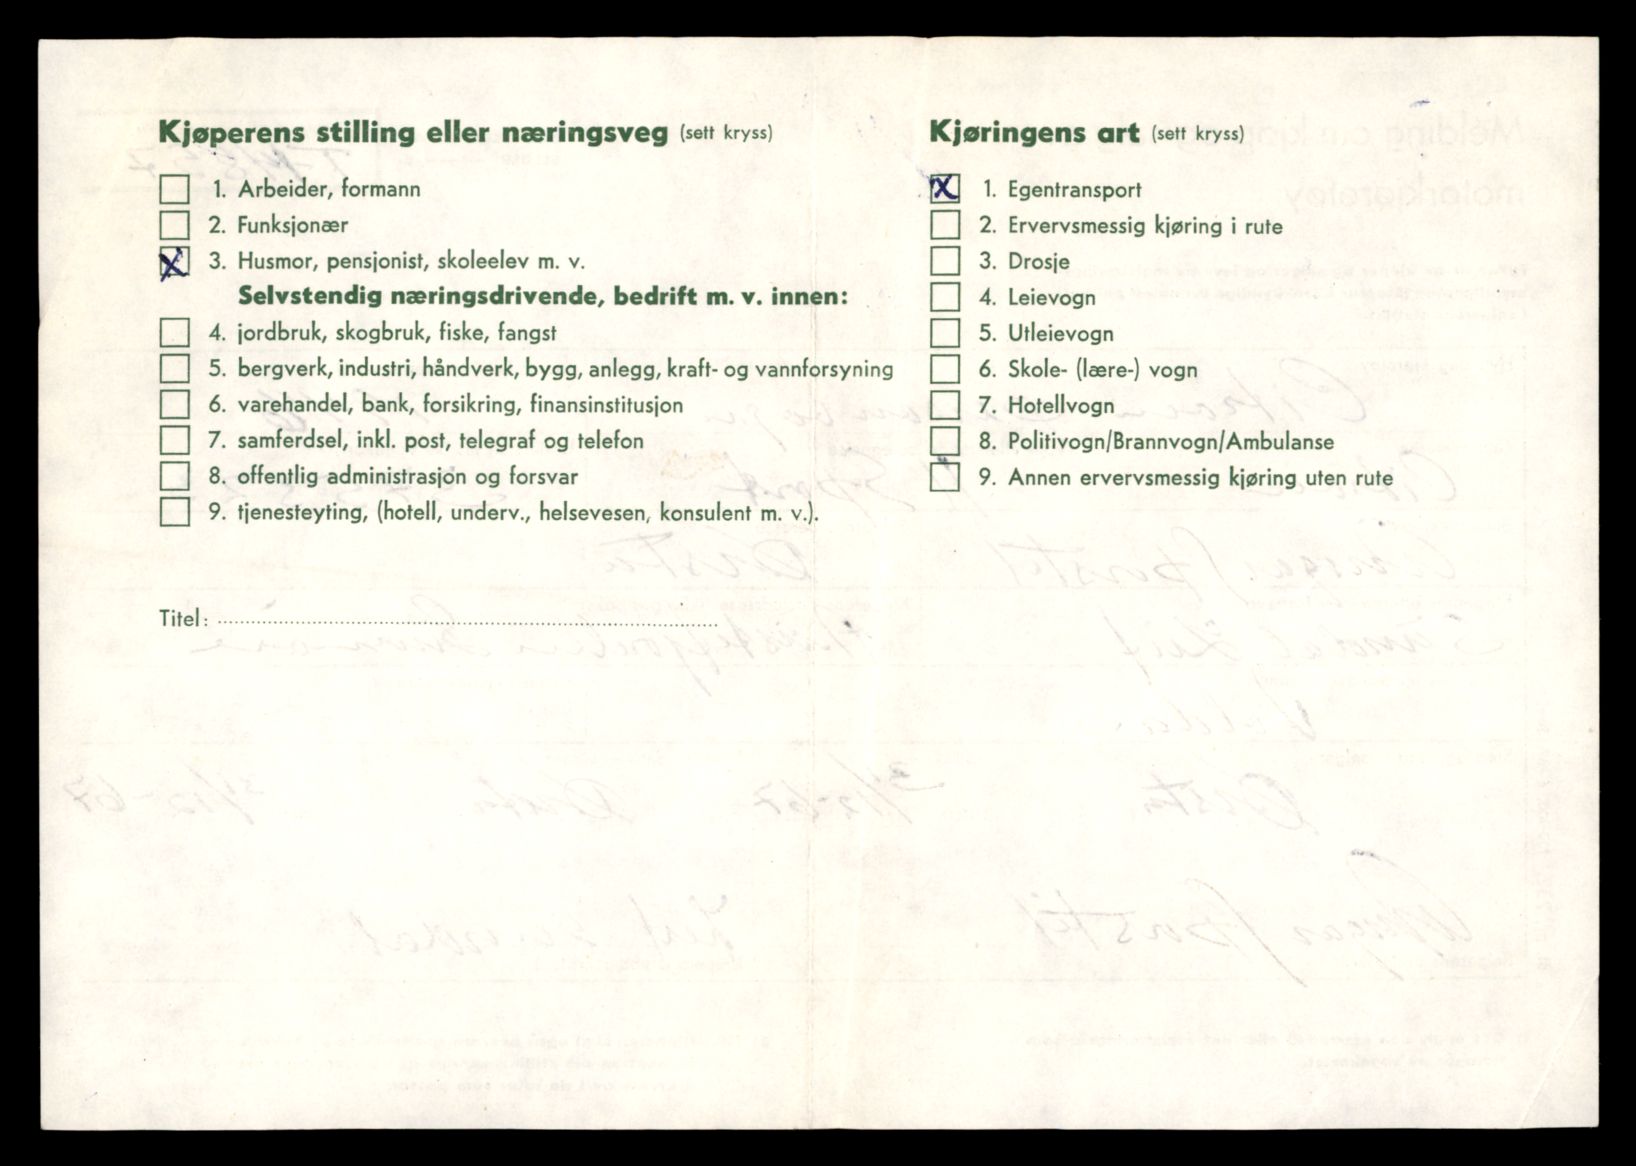 Kjøperens stilling eller næringsveg (sett kryss)
X 1. Arbeider, formann
2. Funksjonær
X 3. Husmor, pensjonist, skoleelev m. v.
Selvstendig næringsdrivende, bedrift m. v. innen:
4. jordbruk, skogbruk, fiske, fangst
5. bergverk, industri, håndverk, bygg, anlegg, kraft- og vannforsyning
6. varehandel, bank, forsikring, finansinstitusjon
7. samferdsel, inkl. post, telegraf og telefon
8. offentlig administrasjon og forsvar
9. tjenesteyting, (hotell, underv., helsevesen, konsulent m. v.).
Titel:
Kjøringens art (sett kryss)
X 1. Egentransport
2. Ervervsmessig kjøring i rute
3. Drosje
4. Leievogn
5. Utleievogn
6. Skole- (lære-) vogn
7. Hotellvogn
8. Politivogn/Brannvogn/Ambulanse
9. Annen ervervsmessig kjøring uten rute